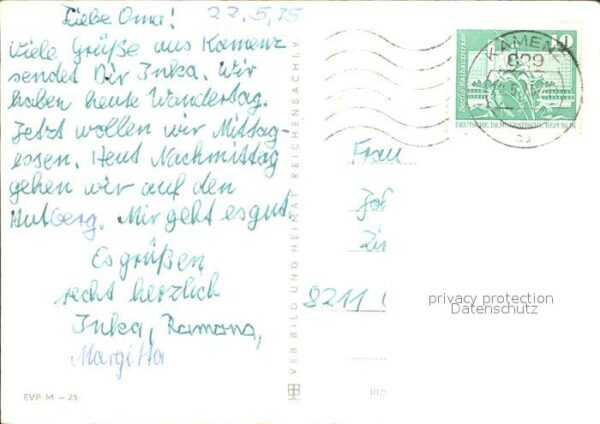 Liebe Oma! 22.5.75
Viele Grüße aus Kamenz
sendet Dir Inka. Wir
haben heute Wandertag.
Jetzt wollen wir Mittag-
essen. Heut Nachmittag
gehen wir auf den
Hutberg. Mir geht es gut.
Es grüßen
recht herzlich
Inka, Ramona,
Margitta
EVP M -.25
VEB BILD UND HEIMAT REICHENBACH I. V.
KAMENZ
829
10
DEUTSCHE DEMOKRATISCHE REPUBLIK
Frau
8211
privacy protection
Datenschutz